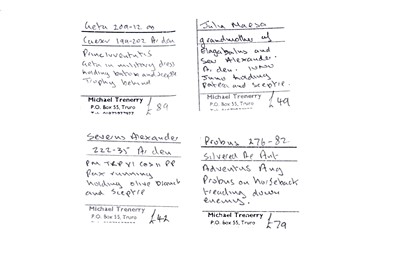 Geta 209-12 AD
Caesar 198-202 Ar den
Princ Iuventutis
Geta in military dress
holding baton and sceptre
Trophy behind
Michael Trenerry
P.O. Box 55, Truro
£89
Julia Maesa
grandmother of
Elagabalus and
Sev Alexander.
Ar den. IUNO
Juno holding
patera and sceptre.
Michael Trenerry
P.O. Box 55, Truro
£49
Severus Alexander
222-35 Ar den
PM TRP VI COS II PP
Pax running
holding olive branch
and sceptre
Michael Trenerry
P.O. Box 55, Truro
£42
Probus 276-82
Silvered Ae Ant
Adventus Aug
Probus on horseback
treading down
enemy.
Michael Trenerry
P.O. Box 55, Truro
£79